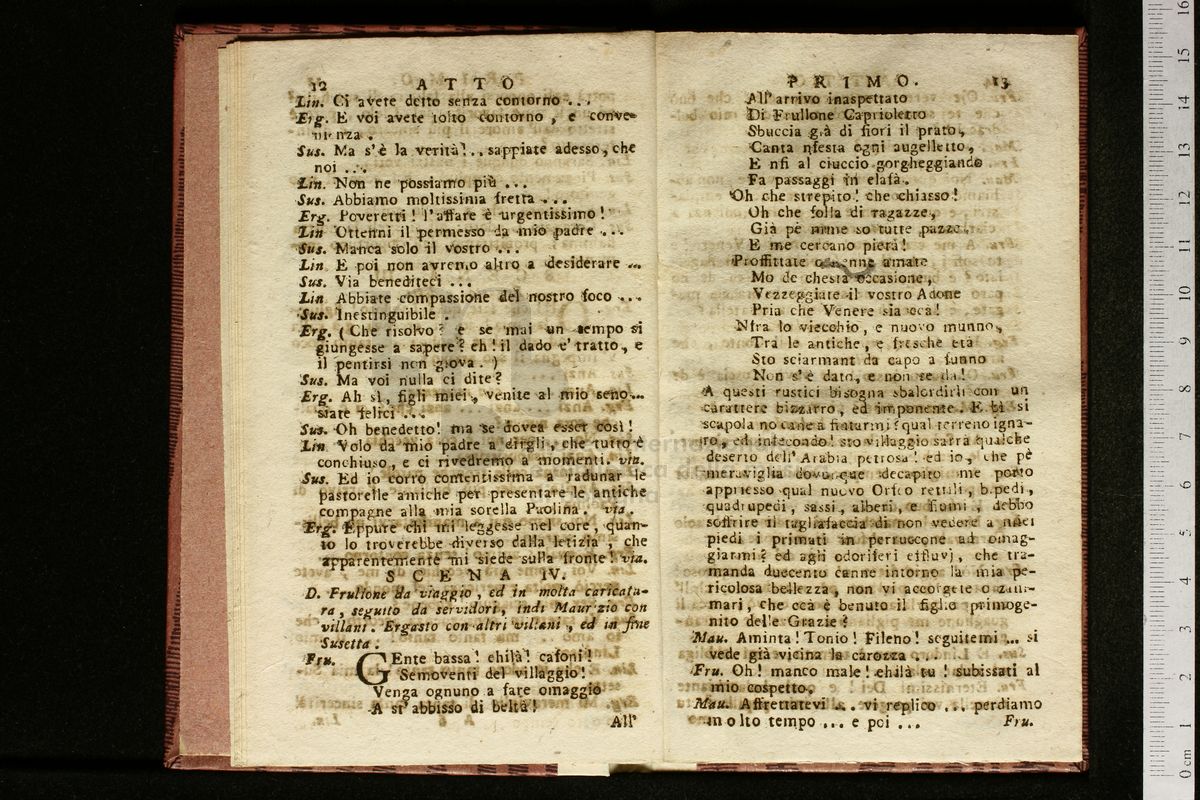 12 ATTO
Lin. Ci avete detto senza contorno ...
Erg. E voi avete tolto contorno, e conve-
nienza.
Sus. Ma s'è la verità!.. sappiate adesso, che
noi ...
Lin. Non ne possiamo più ...
Sus. Abbiamo moltissima fretta ...
Erg. Poveretti! l'affare è urgentissimo!
Lin Ottenni il permesso da mio padre ...
Sus. Manca solo il vostro ...
Lin E poi non avremo altro a desiderare ...
Sus. Via benediteci ...
Lin Abbiate compassione del nostro foco ...
Sus. Inestinguibile.
Erg. (Che risolvo? e se mai un tempo si
giungesse a sapere? eh! il dado e' tratto, e
il pentirsi non giova.)
Sus. Ma voi nulla ci dite?
Erg. Ah sì, figli miei, venite al mio seno...
siate felici ...
Sus. Oh benedetto! ma se dovea esser così!
Lin Volo da mio padre a dirgli, che tutto è
conchiuso, e ci rivedremo a momenti. via.
Sus. Ed io corro contentissima a radunar le
pastorelle amiche per presentare le antiche
compagne alla mia sorella Paolina. via.
Erg. Eppure chi mi leggesse nel core, quan-
to lo troverebbe diverso dalla letizia, che
apparentemente mi siede sulla fronte! via.
SCENA IV.
D. Frullone da viaggio, ed in molta caricatu-
ra, seguito da servidori, indi Maurizio con
villani. Ergasto con altri villani, ed in fine
Susetta.
Fru. GEnte bassa! chilà! cafoni!
Semoventi del villaggio!
Venga ognuno a fare omaggio
A st' abbisso di beltà!
All'
PRIMO. 13
All' arrivo inaspettato
Di Frullone Caprioletto
Sbuccia già di fiori il prato,
Canta nfesta ogni augelletto,
E nfi al ciuccio gorgheggiando
Fa passaggi in elafà.
Oh che strepito! che chiasso!
Oh che folla di ragazze,
Già pè mme so tutte pazze,
E me cercano pietà!
Proffittate o nenne amate
Mo de chesta occasione,
Vezzeggiate il vostro Adone
Pria che Venere sia ccà!
Nfra lo viecchio, e nuovo munno,
Tra le antiche, e fresche età
Sto sciarmant da capo a funno
Non s'è dato, e non se dà!
A questi rustici bisogna sbalordirli con un
carattere bizzarro, ed imponente. E bì si
scapola no cane a fiatarmi! qual terreno igna-
ro, ed infecondo! sto villaggio sarrà qualche
deserto dell' Arabia petrosa! ed io, che pè
meraviglia dovunque decapito me porto
appriesso qual nuovo Orfeo rettili, bipedi,
quadrupedi, sassi, alberi, e fiumi, debbo
soffrire il tagliafaccia di non vedere a miei
piedi i primati in perruccone ad omag-
giarmi? ed agli odoriferi effluvj, che tra-
manda duecento canne intorno la mia pe-
ricolosa bellezza, non vi accorgete o zani-
mari, che ccà è benuto il figlio primoge-
nito delle Grazie?
Mau. Aminta! Tonio! Fileno! seguitemi ... si
vede già vicina la carozza ...
Fru. Oh! manco male! chilà tu! subissati al
mio cospetto.
Mau. Affrettatevi ... vi replico ... perdiamo
molto tempo ... e poi ...
Fru.